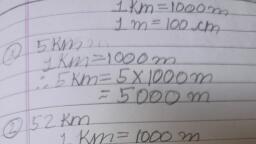 1 Km = 1000 m
1 m = 100 cm
① 5 Km
1 Km = 1000 m
∴ 5 Km = 5 × 1000 m
= 5000 m
② 52 Km
1 Km = 1000 m